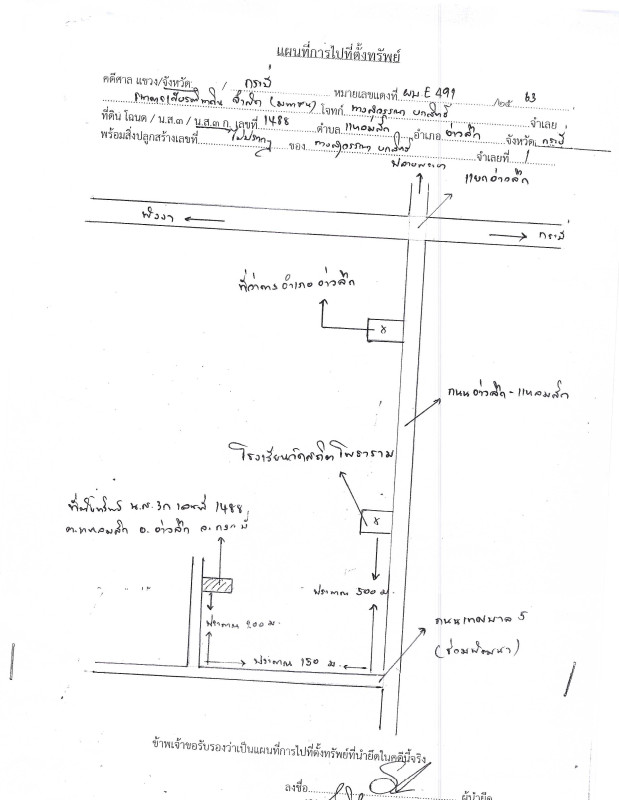 แผนที่การไปที่ตั้งทรัพย์
คดีศาล แขวง/จังหวัด กระบี่ หมายเลขแดงที่ ผบ.E 491 /๒๕ 63
ธนาคารเกียรตินาคิน จำกัด (มหาชน) โจทก์ นางสุวรรณา จำเลย
ที่ดิน โฉนด / น.ส.๓ / น.ส.๓ ก. เลขที่ 1488 ตำบล แหลมสัก อำเภอ อ่าวลึก จังหวัด กระบี่
พร้อมสิ่งปลูกสร้างเลขที่ ไม่ปรากฏ ของ นางสุวรรณา จำเลยที่ 1
ปลายพระยา
แยกอ่าวลึก
พังงา
กระบี่
ที่ว่าการอำเภออ่าวลึก
ถนนอ่าวลึก-แหลมสัก
โรงเรียนวัดสถิตโพธาราม
ที่ดิน น.ส.3ก เลขที่ 1488
ต.แหลมสัก อ.อ่าวลึก จ.กระบี่
ประมาณ 500 ม.
ประมาณ 200 ม.
ถนนเทศบาล 5
(ร่วมพัฒนา)
ประมาณ 150 ม.
ข้าพเจ้าขอรับรองว่าเป็นแผนที่การไปที่ตั้งทรัพย์ที่นำยึดในคดีนี้จริง
ลงชื่อ ผู้นำยึด